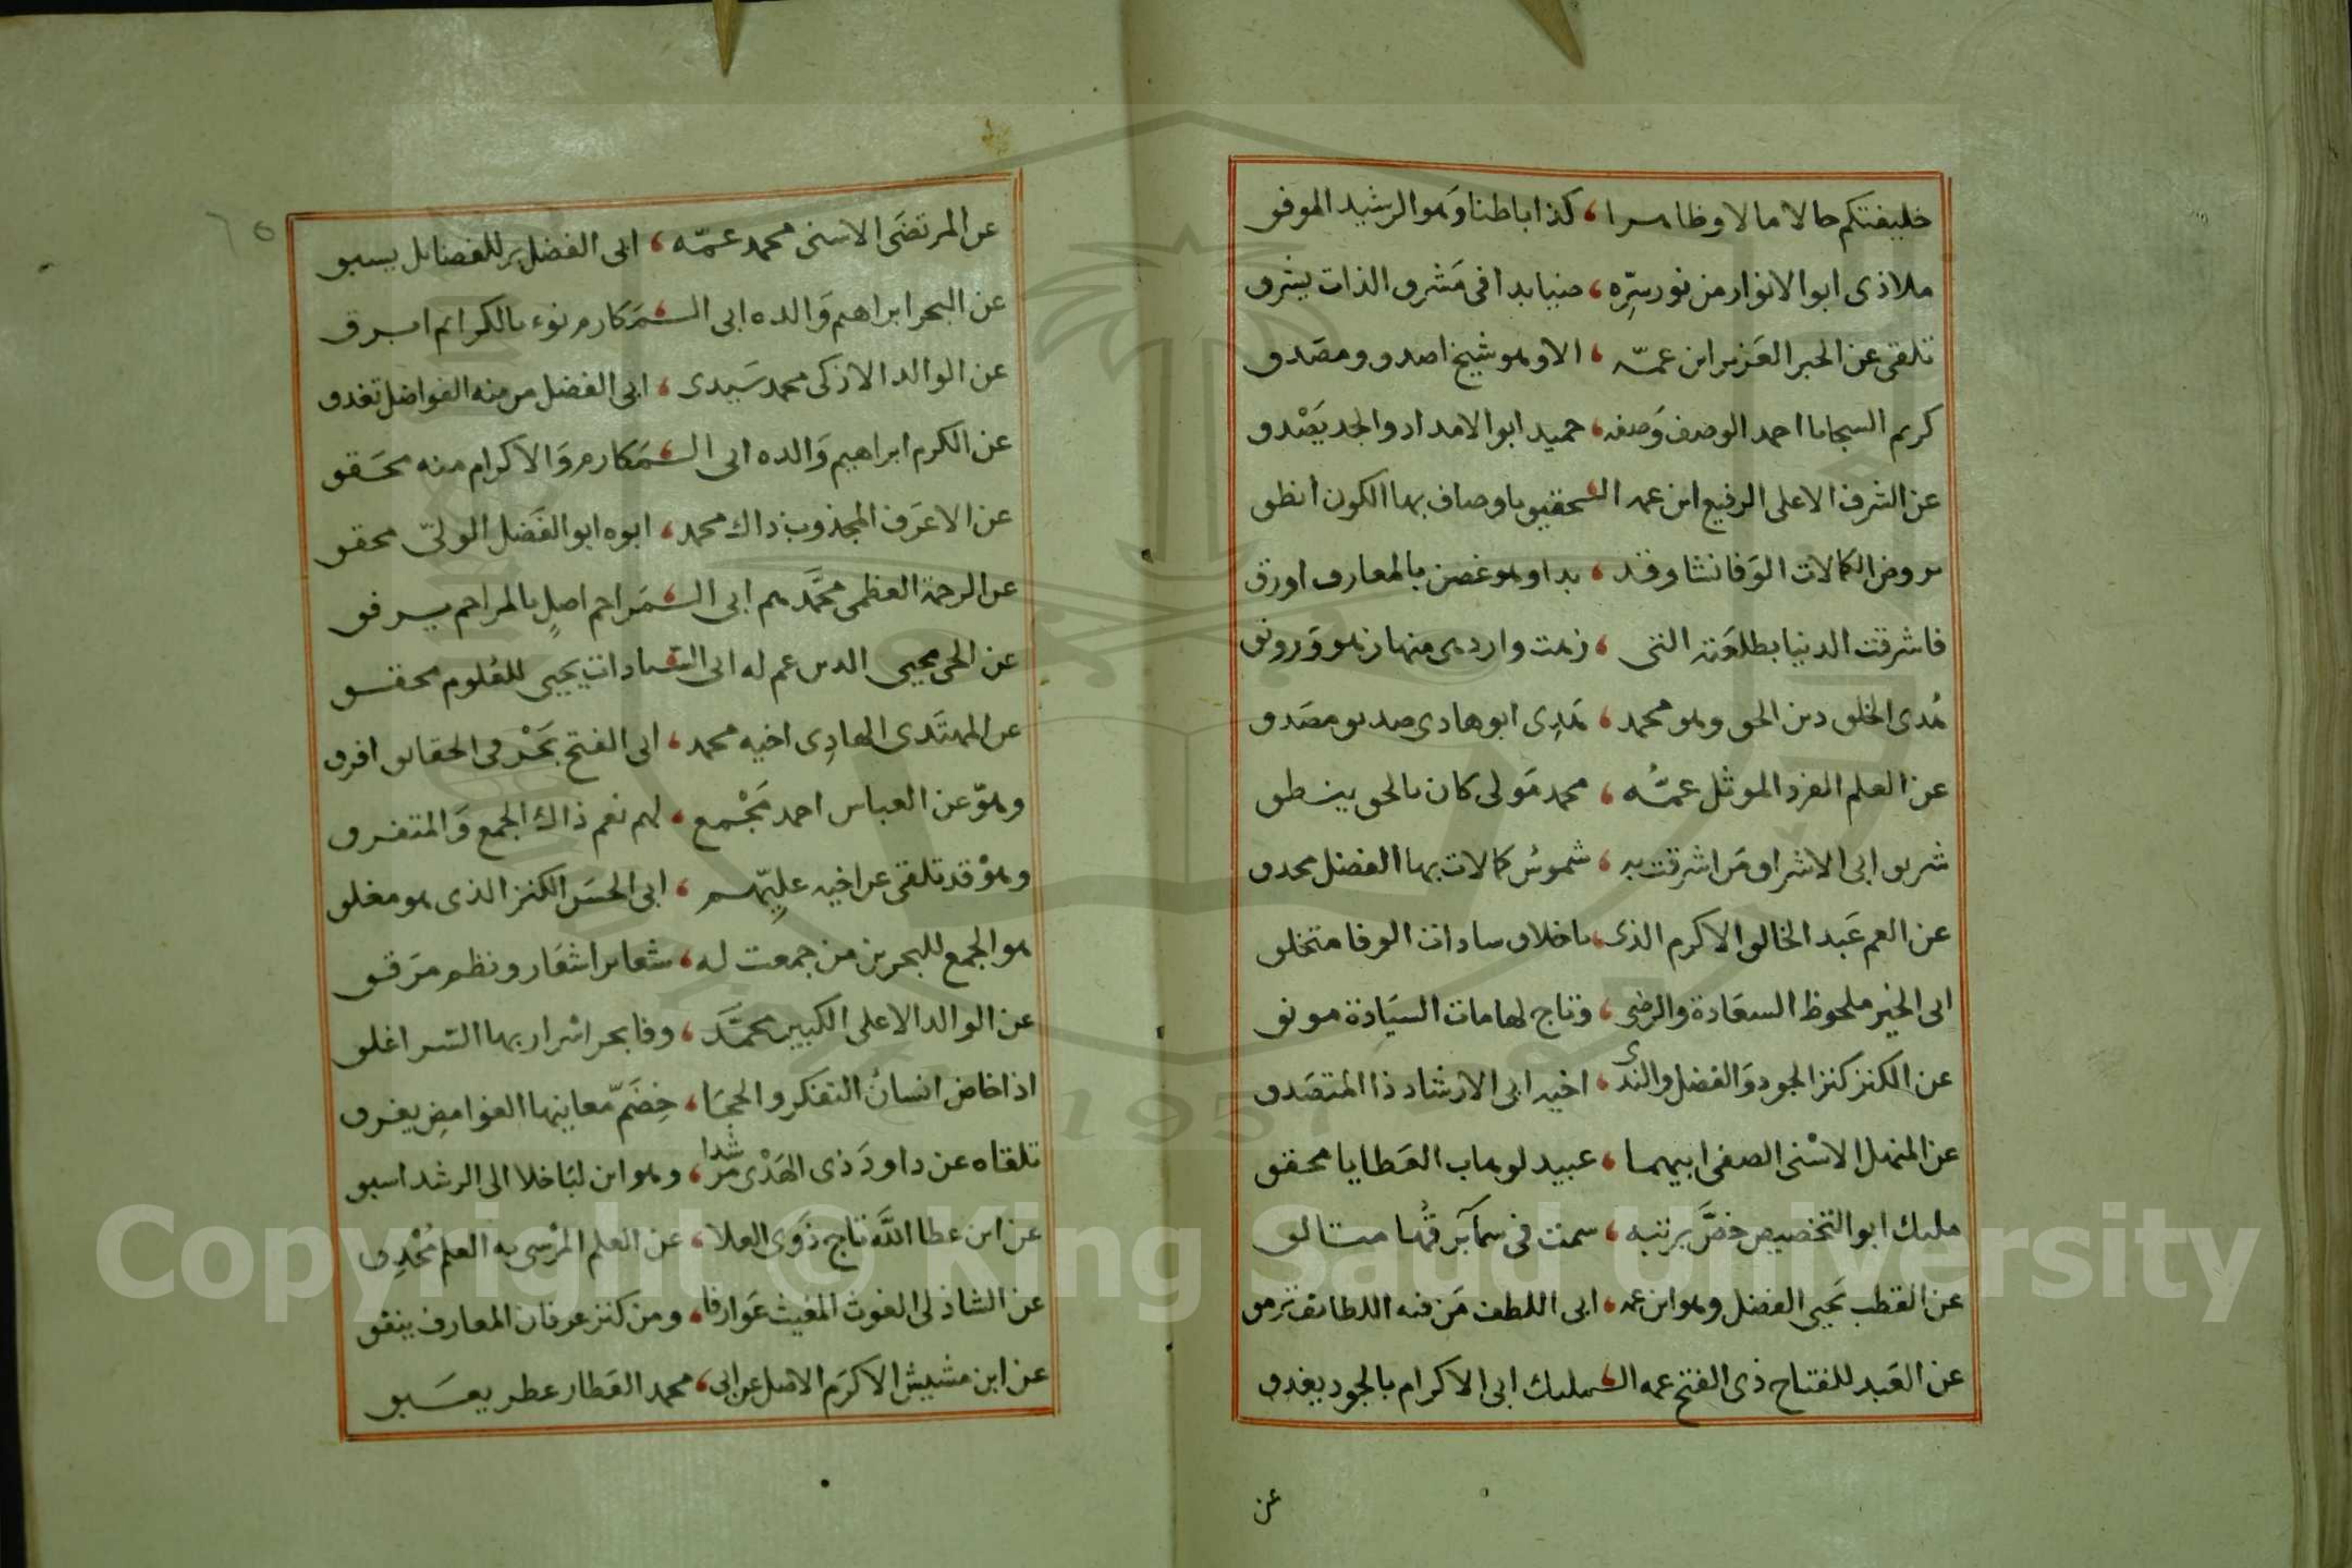 خليفتكم حالا مالا وظاهرا ، كذا باطنا وهو الرشيد الموفق
ملاذى ابو الانوار من نور سره ، ضيا بدا فى مشرق الذات يشرق
تلقى عن الحبر العزيز ابن عمه ، الا وهو شيخ اصدق ومصدق
كريم السجايا احمد الوصف وصفه ، حميد ابو الامداد والجد يصدق
عن الشرف الاعلى الرفيع ابن عمه التحقيق باوصاف بها الكون انطق
بروض الكمالات الوفا نشا وقد ، بدا وهو غصن بالمعارف اورق
فاشرقت الدنيا بطلعته التى ، زهت وازدهى منها زهو ورونق
هدى الخلق دين الحق وهو محمد ، هدى ابو هادى صديق مصدق
عن العلم الفرد الموثل عمه ، محمد مولى كان بالحق ينطق
شريق ابى الاشراق من اشرقت به ، شموس كمالات بها الفضل محدق
عن العم عبد الخالق الاكرم الذى ، باخلاق سادات الوفا متخلق
ابى الخير ملحوظ السعادة والرضى ، وتاج لهامات السيادة مونق
عن الكنز كنز الجود والفضل والندى ، اخيه ابى الارشاد ذا المتصدق
عن المنهل الاسنى الصفى ابيهما ، عبيد لوهاب العطايا محقق
مليك ابو التخصيص خص برتبه ، سمت فى سما برقها متالق
عن القطب يحيى الفضل وهو ابن عمه ، ابى اللطف من فيه اللطائف ترمق
عن العبد للفتاح ذى الفتح عمه المليك ابى الاكرام بالجود يغدق
عن
عن المرتضى الاسنى محمد عمه ، ابى الفضل بر للفضايل يسبق
عن البحر ابراهيم والده ابى المكارم نوء بالكرائم ابرق
عن الوالد الازكى محمد سيدى ، ابى الفضل من منه الفواضل تغدق
عن الكرم ابراهيم والده ابى المكارم والاكرام منه محقق
عن الاعرف المجذوب ذاك محمد ، ابوه ابو الفضل الولى محقق
عن الرحمة العظمى محمدهم ابى المراحم اصل بالمراحم يرفق
عن الحى محيى الدين عم له ابى السادات يحيى للعلوم محقق
عن المهتدى الهادى اخيه محمد ، ابى الفتح بحر فى الحقايق افرق
وهو عن العباس احمد مجمع ، لهم نعم ذاك الجمع والمتفرق
وهو قد تلقى عن اخيه عليهم ، ابى الحسن الكنز الذى هو مغلق
هو الجمع للبحرين من جمعت له ، شعاير اشعار ونظم مرقق
عن الوالد الاعلى الكبير محمد ، وفا بحر اسرار بها السر اغلق
اذا خاض انسان التفكر والحجا ، خضم معانيها الغوامض يغرق
تلقاه عن داود ذى الهدى مرشدا ، وهو ابن لباخلا الى الرشد اسبق
عن ابن عطا الله تاج ذوى العلا ، عن العلم المرسى به العلم محدق
عن الشاذلى الغوث المغيث عوارفا ، ومن كنز عرفان المعارف ينفق
عن ابن مشيش الاكرم الاصل عن ابى ، محمد العطار عطر يعبق
Copyright © King Saud University
1957